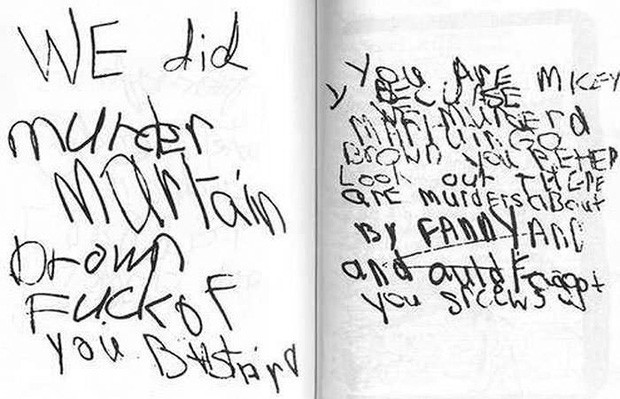 WE did
murder
martain
brown
FUCKOF
you BAStArd
you ArE micEy
y BECUASE
WE murderd
MArtAin GO
Brown you BEttEr
Look out THErE
arE murders aBout
By FANNYANd
and auld Faggot
you srcews